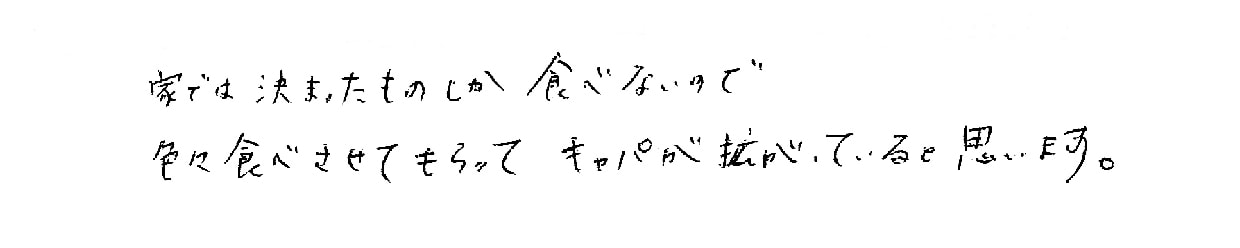 家では決まったものしか食べないので
色々食べさせてもらってキャパが拡がっていると思います。